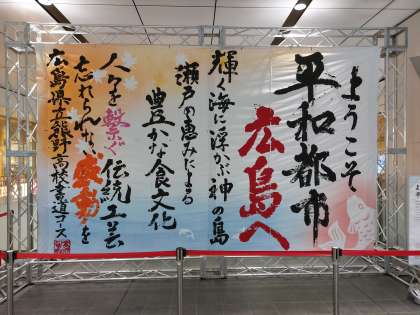 ようこそ
平和都市
広島へ
輝く海に浮かぶ神の島
瀬戸の恵みによる
豊かな食文化
人々を繋ぐ伝統工芸
忘れられない感動を
広島県立熊野高校書道コース